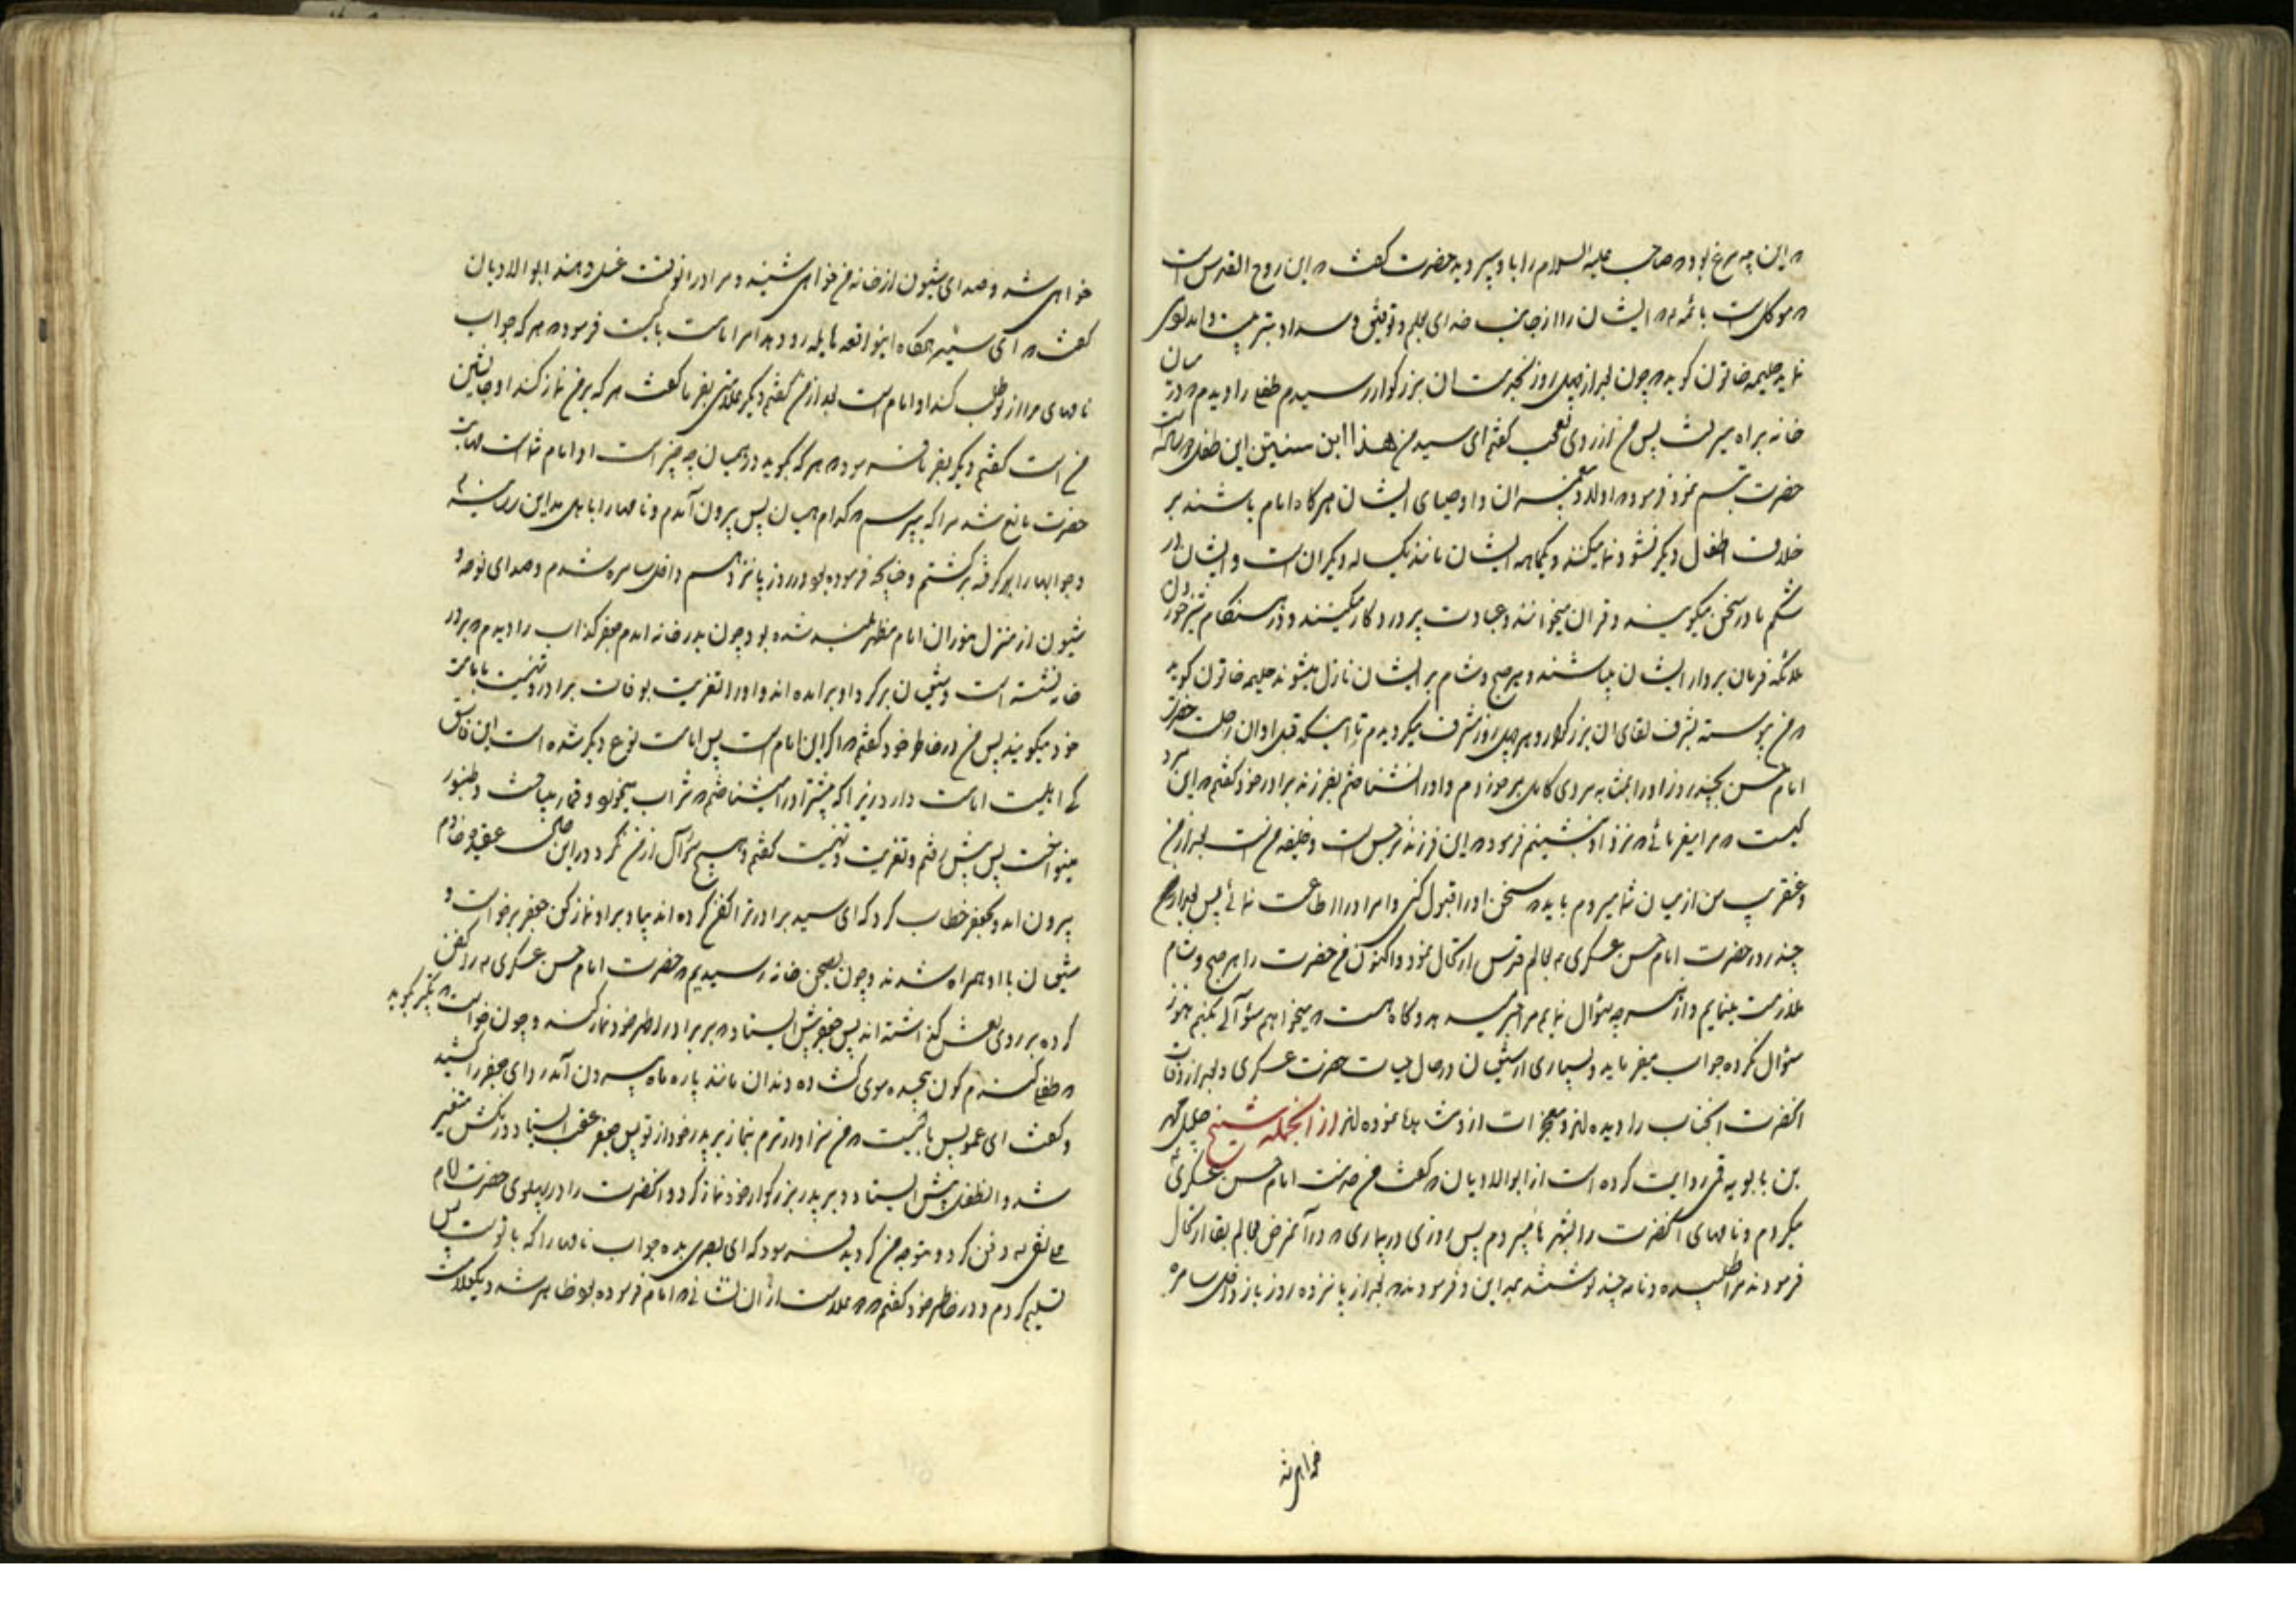 که این چه مرغ بود که صاحب علیه السلام را باو سپردید حضرت گفت که این روح القدس است
که موکل است بائمه که ایشان را از جانب خدای بعلم و توفیق و سداد تربیت
نماید حلیمه خاتون گوید که چون بعد از چهل روز بخدمت ان بزرگوار رسیدم طفلی را دیدم که در میان
خانه براه میرفت پس من از روی تعجب گفتم ای سید من هذا ابن سنتین این طفل دو ساله است
حضرت تبسم نمود فرمود که اولاد پیغمبران و اوصیای ایشان هرگاه امام باشند بر
خلاف اطفال دیگر نشو و نما میکنند و یکماهه ایشان مانند یکساله دیگران است و ایشان در
شکم مادر سخن میگویند و قران میخوانند و عبادت پروردگار میکنند و در هنگام شیر خوردن
ملائکه فرمان بردار ایشان میباشند و هر صبح و شام بر ایشان نازل میشوند حلیمه خاتون گوید
که من پیوسته بشرف لقای ان بزرگوار در هر چهل روز مشرف میگردیدم تا اینکه قبل از ان رحلت حضرت
امام حسن بچند روز او را بمشابه مردی کامل برخوردم و او را نشناختم بفرزند برادر خود گفتم که این مرد
کیست که مرا میفرمائی که نزد او بنشینم فرمود که این فرزند نرجس است و خلیفه من است بعد از من
و عنقریب من از میان شما میروم باید که سخن او را قبول کنی و امر او را اطاعت نمائی پس بعد از
چند روز حضرت امام حسن عسکری به عالم قدس ارتحال نمود و اکنون من حضرت را هر صبح و شام
ملازمت مینمایم و از هر چه سؤال نمایم مرا خبر میدهد و گاه هست که میخواهم سؤالی بکنم هنوز
سؤال نکرده جواب میفرماید و بسیاری از شیعیان در حال حیات حضرت عسکری و بعد از وفات
انحضرت انجناب را دیده‌اند و معجزات از او مشاهده نموده‌اند از انجمله شیخ جلیل محمد
بن بابویه قمی روایت کرده است از ابوالادیان که گفت من خدمت امام حسن عسکری
میکردم و نامهای انحضرت را بشهرها میبردم پس روزی در بیماری که در آن مرض بعالم بقا ارتحال
فرمودند مرا طلبیده و نامه چند نوشتند بمداین و فرمودند که بعد از پانزده روز باز داخل سامره
خواهی شد
خواهی شد و صدای شیون از خانه من خواهی شنید و مرا در انوقت غسل دهند ابوالادیان
گفت که ای سید هرگاه این واقعه هایله رو دهد امر امامت با کیست فرمود که هر که جواب
نامهای مرا از تو طلب کند او امام است بعد از من گفتم دیگر علامتی بفرما گفت هر که بر من نماز کند او جانشین
من است گفتم دیگر بفرما فرمود که هر که بگوید در همیان چه چیز است او امام شما است مهابت
حضرت مانع شد مرا که بپرسم که کدام همیان پس بیرون آمدم و نامها را باهل مداین رسانیدم
و جوابها را برگرفته برگشتم و چنانچه فرموده بود در روز پانزدهم داخل سامره شدم و صدای نوحه و
شیون از منزل منوران امام مطهر بلند شده بود چون بدر خانه امدم جعفر کذاب را دیدم که بر در
خانه نشسته است و شیعیان بر گرد او برامده‌اند و او را تعزیت بوفات برادر و تهنیت بامامت
خود میگویند پس من در خاطر خود گفتم که اگر این امام است پس امامت نوع دیگر شده است این فاسق
کی اهلیت امامت دارد زیرا که پیشتر او را میشناختم که شراب میخورد و قمار میباخت و طنبور
مینواخت پس پیش رفتم و تعزیت و تهنیت گفتم و هیچ سؤال از من نکرد در این حال عقید خادم
بیرون امد و بجعفر خطاب کرد که ای سید برادرت را کفن کرده‌اند بیا و بر او نماز کن جعفر برخواست و
شیعیان با او همراه شدند و چون بصحن خانه رسیدیم که حضرت امام حسن عسکری را کفن
کرده بر روی نعش گذاشته‌اند پس جعفر پیش ایستاد که بر برادر اطهر خود نماز کند و چون خواست که تکبیر گوید
که طفلی گندم گون پیچیده موی گشاده دندان مانند پاره ماه بیرون آمد ردای جعفر را کشید
و گفت ای عمو پس بایست که من سزاوارترم بنماز بر پدر خود از تو پس جعفر عقب ایستاد و رنگش متغیر
شد و ان طفل پیش ایستاد و بر پدر بزرگوار خود نماز کرد و انحضرت را در پهلوی حضرت امام
علی نقی دفن کرد و متوجه من گردید فرمود که ای بصری بده جواب نامها را که با توست پس
تسلیم کردم و در خاطر خود گفتم که دو علامت از ان نشانی که امام فرموده بود ظاهر شد و یکعلامت